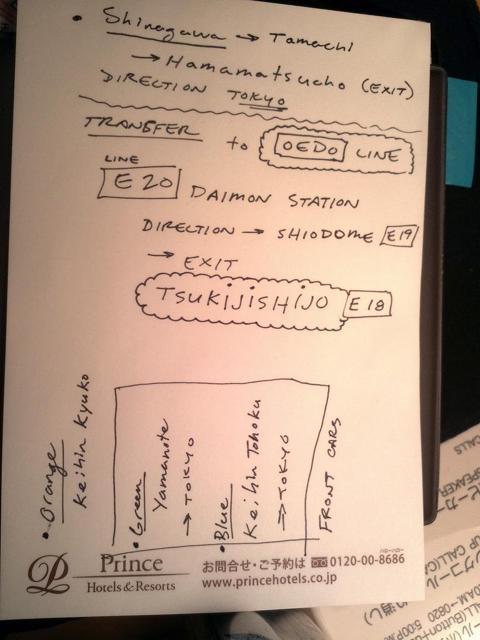 • Shinagawa → Tamachi
→ Hamamatsucho (EXIT)
DIRECTION TOKYO
TRANSFER to OEDO LINE
LINE
E20 DAIMON STATION
DIRECTION → SHIODOME E19
→ EXIT
TSUKIJISHIJO E18
• Orange
Keihin Kyuko
• Green
Yamanote
→ TOKYO
• Blue
Keihin Tohoku
→ TOKYO
FRONT CARS
Prince
Hotels & Resorts
お問合せ・ご予約は 0120-00-8686
www.princehotels.co.jp